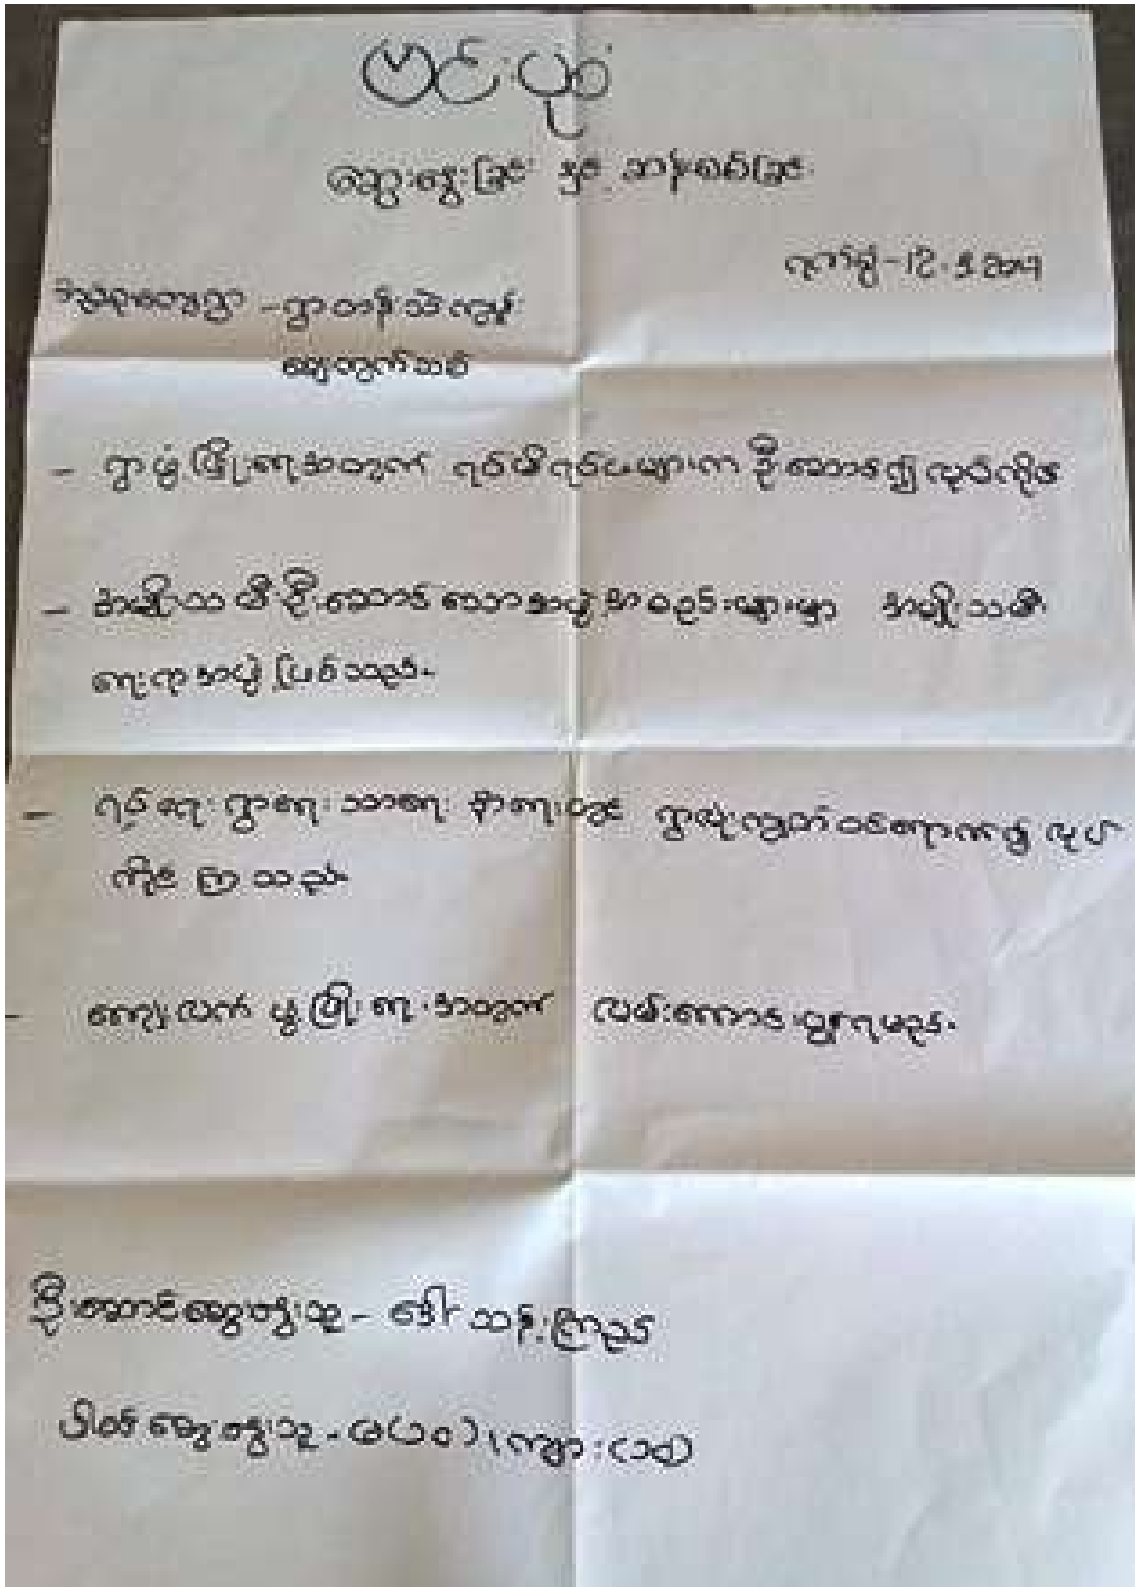 မြင်းပုံဝံ
ဆွေးနွေးခြင်း နှင့် ဆန်းစစ်ခြင်း
ရက်စွဲ-12.5.2017
ကျေးရွာ - ရွာတန်းသဲကျွန်း
ချောတွက်သစ်
- ရွာဖွံ့ဖြိုးရေးအတွက် ရပ်မိရပ်ဖများက ဦးဆောင်၍ လုပ်ကိုင်
- အမျိုးသမီးဦးဆောင်သောအဖွဲ့အစည်းများမှာ အမျိုးသမီး
ရေးရာအဖွဲ့ ဖြစ်သည်။
- ရပ်ရေး ရွာရေး သာရေး နာရေးတွင် ရွာလုံးကျွတ်ပါဝင်၍ လုပ်
ကိုင်ကြသည်။
- ကျေးလက်ဖွံ့ဖြိုးရေးအတွက် လမ်းကောင်း
ဦးဆောင်ဆွေးနွေးသူ - ဒေါ်သန်းကြည်
ပါဝင်ဆွေးနွေးသူ - မ(၁၀)၊ ကျား(၁၀)